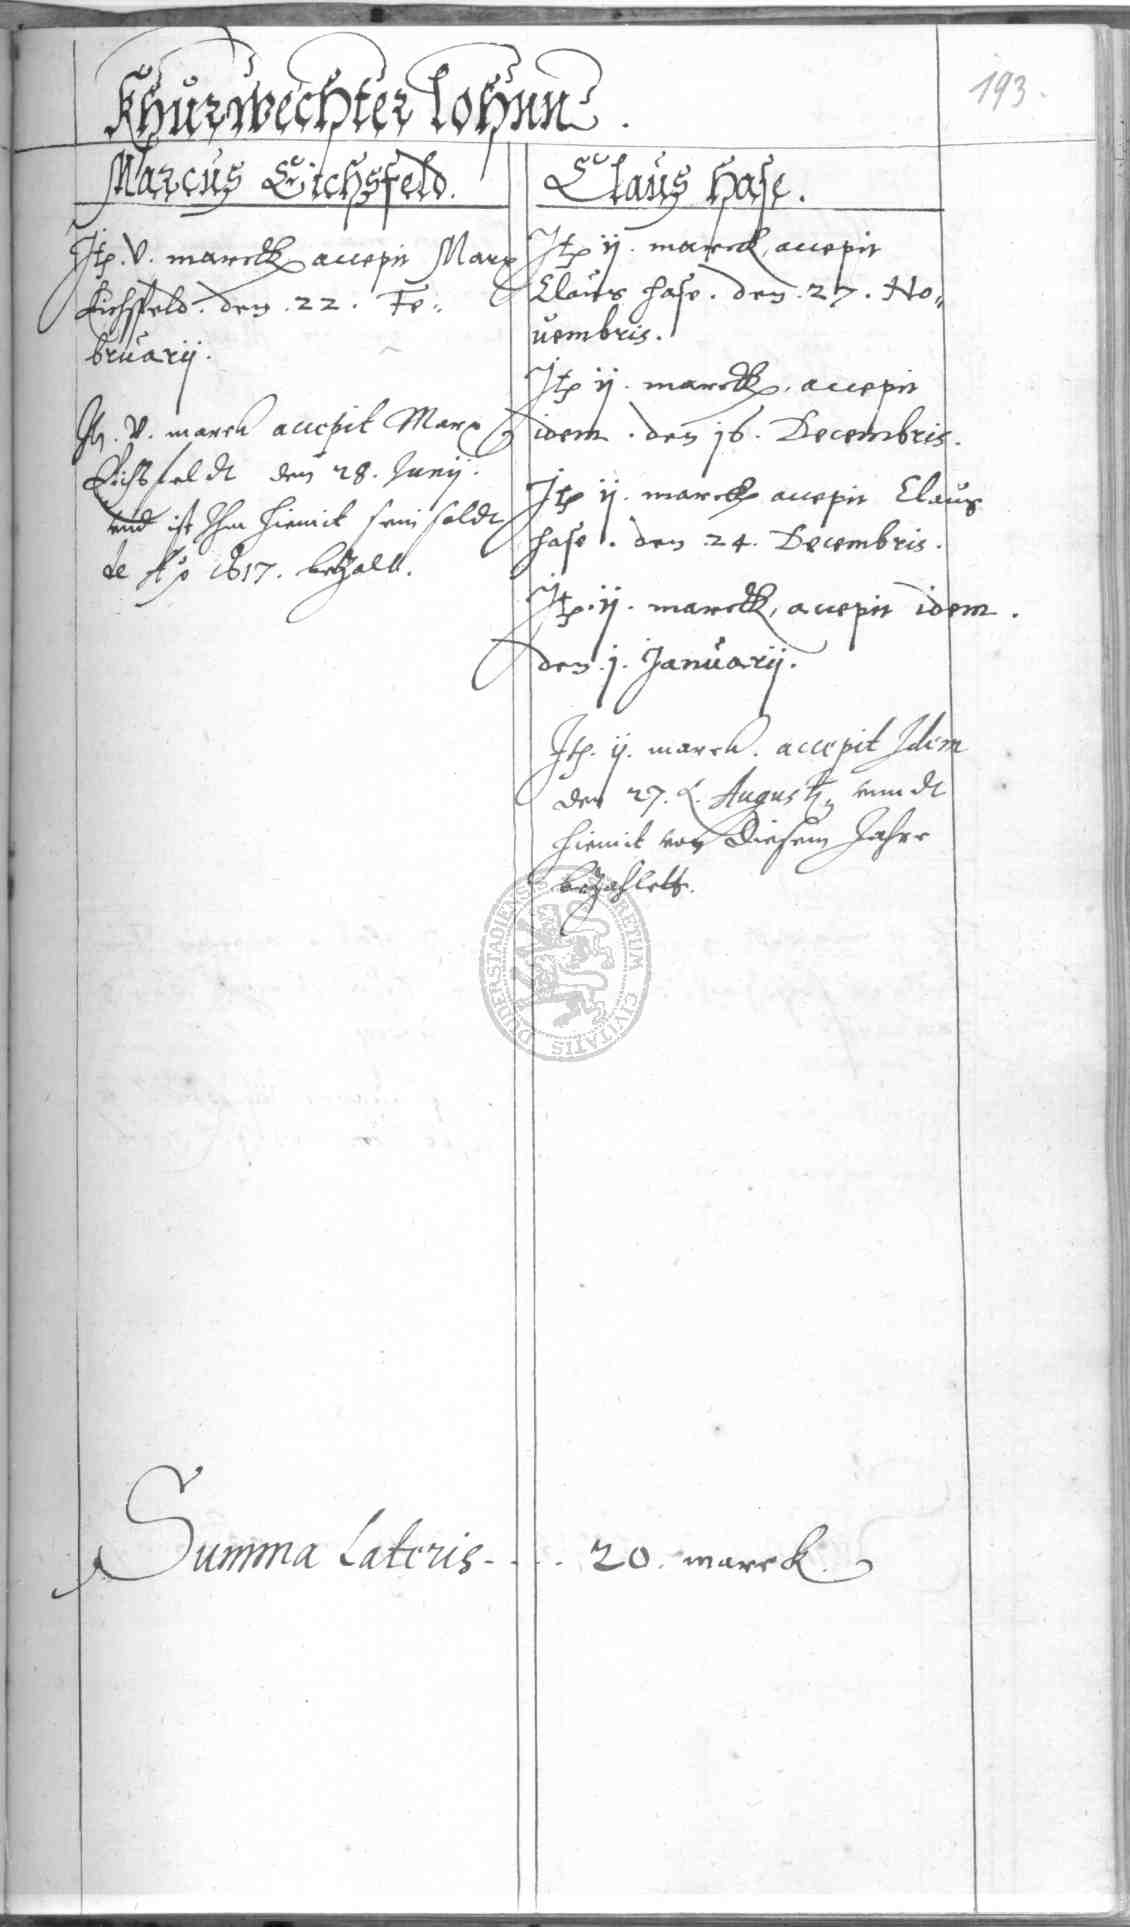 193.
Khurwechter lohnn.
Marcus Eichsfeld.
Itp. V. marckk accepit Marx
Eichsfeld. den .22. Fe„
bruarij.
It. V. marck accepit Marx
Eichsfeldt den 28. Junij.
undt ist Ihm hiemit sein soldt
de Ao 1617. bezalt.
Claus hase.
Itp ij. marck, accepit
Claus hase. den .27. No„
uembris.
Itp ij. marckk, accepit
idem. den 16. Decembris.
Itp ij. marckk accepit Claus
hase. den .24. Decembris.
Itp. ij. marckk, accepit idem.
den .j. Januarij.
Itp. ij. marck. accepit Idem
den 27. Augusti, vnndt
hiemit von diesem Jahre
bezahlett.
SECRETUM CIVITATIS DUDERSTADIENSIS
Summa Lateris - . - . 20. marck.